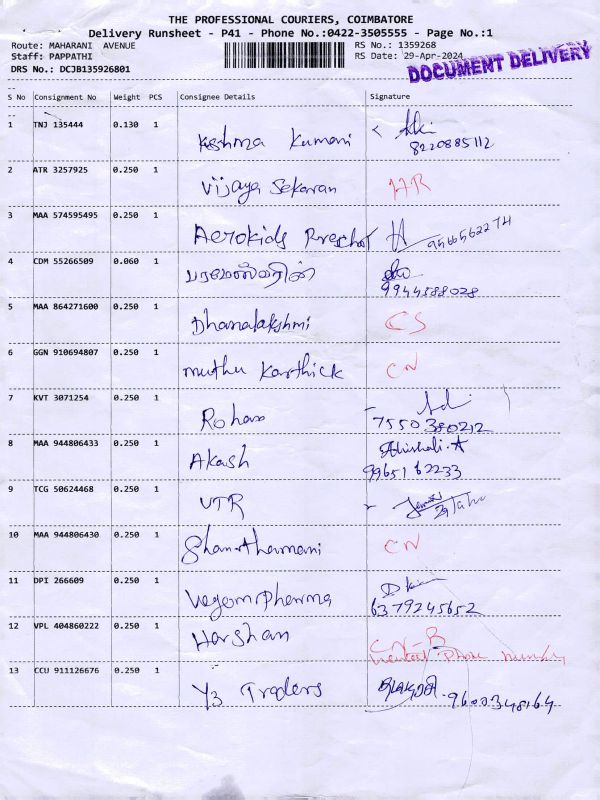 THE PROFESSIONAL COURIERS, COIMBATORE
Delivery Runsheet - P41 - Phone No.:0422-3505555 - Page No.:1
Route: MAHARANI AVENUE
Staff: PAPPATHI
DRS No.: DCJB135926801
RS No.: 1359268
RS Date: 29-Apr-2024
DOCUMENT DELIVERY
S No Consignment No Weight PCS Consignee Details Signature
1 TNJ 135444 0.130 1 Kumari
8220885112
2 ATR 3257925 0.250 1 Vijaya Sekaran HR
3 MAA 574595495 0.250 1 Aerokids
4 CDM 55266509 0.060 1
9944588028
5 MAA 864271600 0.250 1 Dhanalakshmi CS
6 GGN 910694807 0.250 1 muthu Karthick CN
7 KVT 3071254 0.250 1 Rohan
7550380212
8 MAA 944806433 0.250 1 Akash
9965162233
9 TCG 50624468 0.250 1 VTR
10 MAA 944806430 0.250 1 CN
11 DPI 266609 0.250 1
6379245652
12 VPL 404860222 0.250 1 Harshan
13 CCU 911126676 0.250 1 Y3 Traders 9600348164